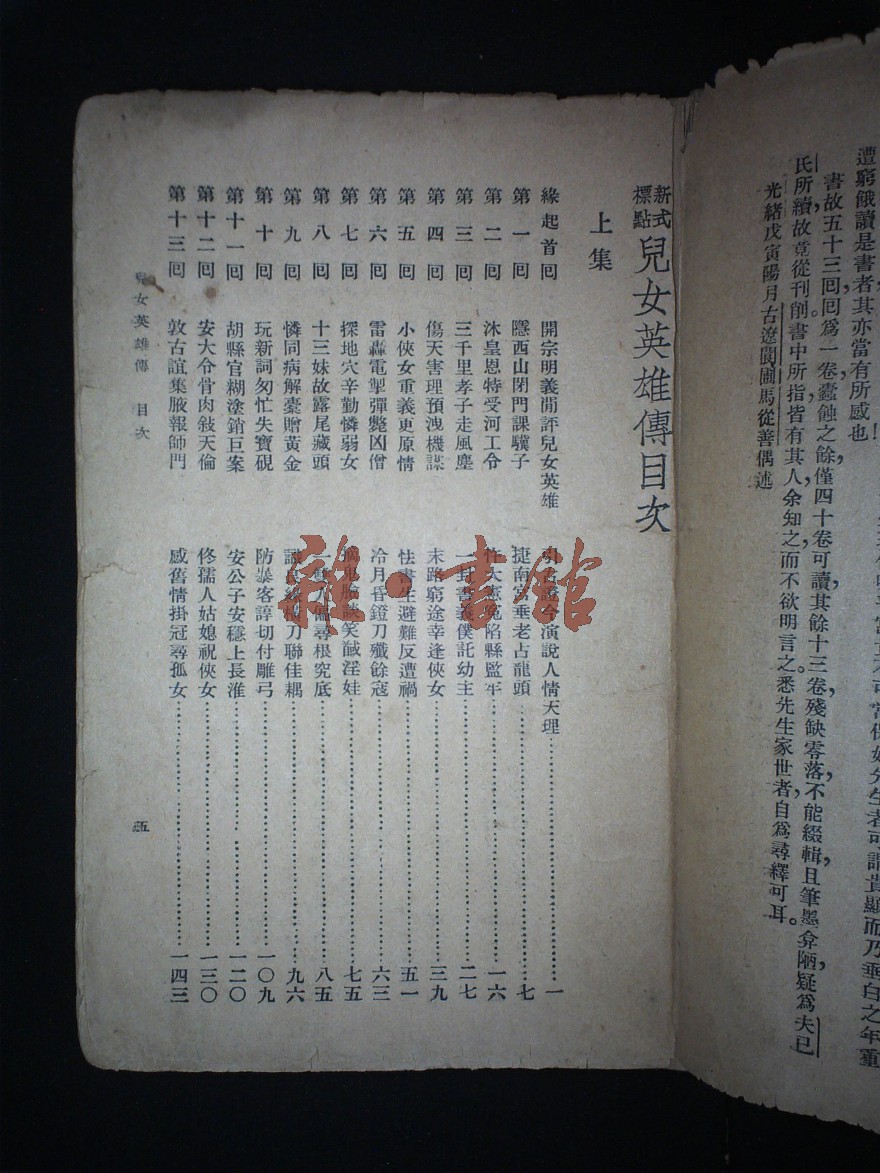 遭窮餓讀是書者其亦當有所感也！
書故五十三回回爲一卷蠹蝕之餘，僅四十卷可讀，其餘十三卷殘缺零落，不能綴輯，且筆墨弇陋，疑爲夫已
氏所續，故竟從刊削。書中所指，皆有其人，余知之而不欲明言之。悉先生家世者，自爲尋繹可耳。
光緒戊寅陽月古遼閬圃馬從善偶述
新式標點 兒女英雄傳目次
上集
緣起首回 開宗明義閒評兒女英雄 引古證今演說人情天理 一
第一回 隱西山閉門課驥子 捷南宮垂老占龍頭 七
第二回 沐皇恩特受河工令 忤大憲冤陷縣監牢 一六
第三回 三千里孝子走風塵 一封書義僕託幼主 二七
第四回 傷天害理預洩機謀 末路窮途幸逢俠女 三九
第五回 小俠女重義更原情 怯書生避難反遭禍 五一
第六回 雷轟電掣彈斃凶僧 冷月昏鐙刀殲餘寇 六三
第七回 探地穴辛勤憐弱女 談笑馘淫娃 七五
第八回 十三妹故露尾藏頭 一雙人偏尋根究底 八五
第九回 憐同病解橐贈黃金 識良緣橫刀聯佳耦 九六
第十回 玩新詞匆忙失寶硯 防暴客諄切付雕弓 一〇九
第十一回 胡縣官糊塗銷巨案 安公子安穩上長淮 一二〇
第十二回 安大令骨肉敍天倫 佟孺人姑媳祝俠女 一三〇
第十三回 敦古誼集腋報師門 感舊情掛冠尋孤女 一四三
兒女英雄傳 目次
五
雜·書館